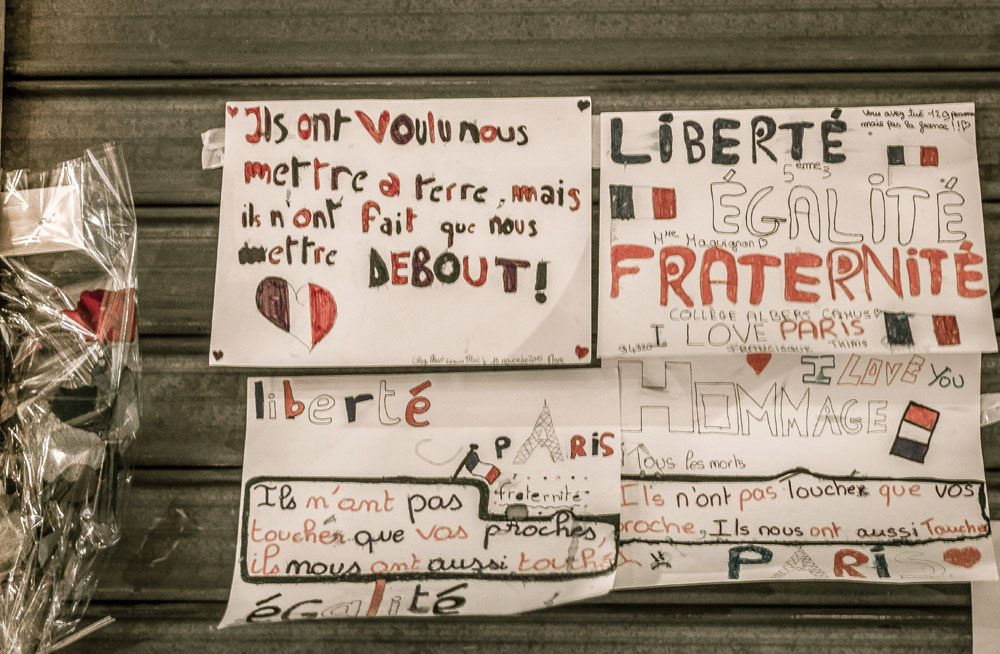 Ils ont Voulu nous
mettre a terre, mais
ils n'ont fait que nous
mettre DEBOUT!
LIBERTÉ
Vous avez tué 129
mais pas la france !!!
5ème3
ÉGALITÉ
Mme Maquignon
FRATERNITÉ
COLLÈGE ALBERT CAMUS
I LOVE PARIS
Thimis
liberté
PARIS
fraternité
Ils n'ant pas
toucher que vos proches,
ils nous ont aussi touchés
égalité
I LOVE YOU
HOMMAGE
Tous les morts
Ils n'ont pas Toucher que vos
proche, Ils nous ont aussi Toucher
PARIS